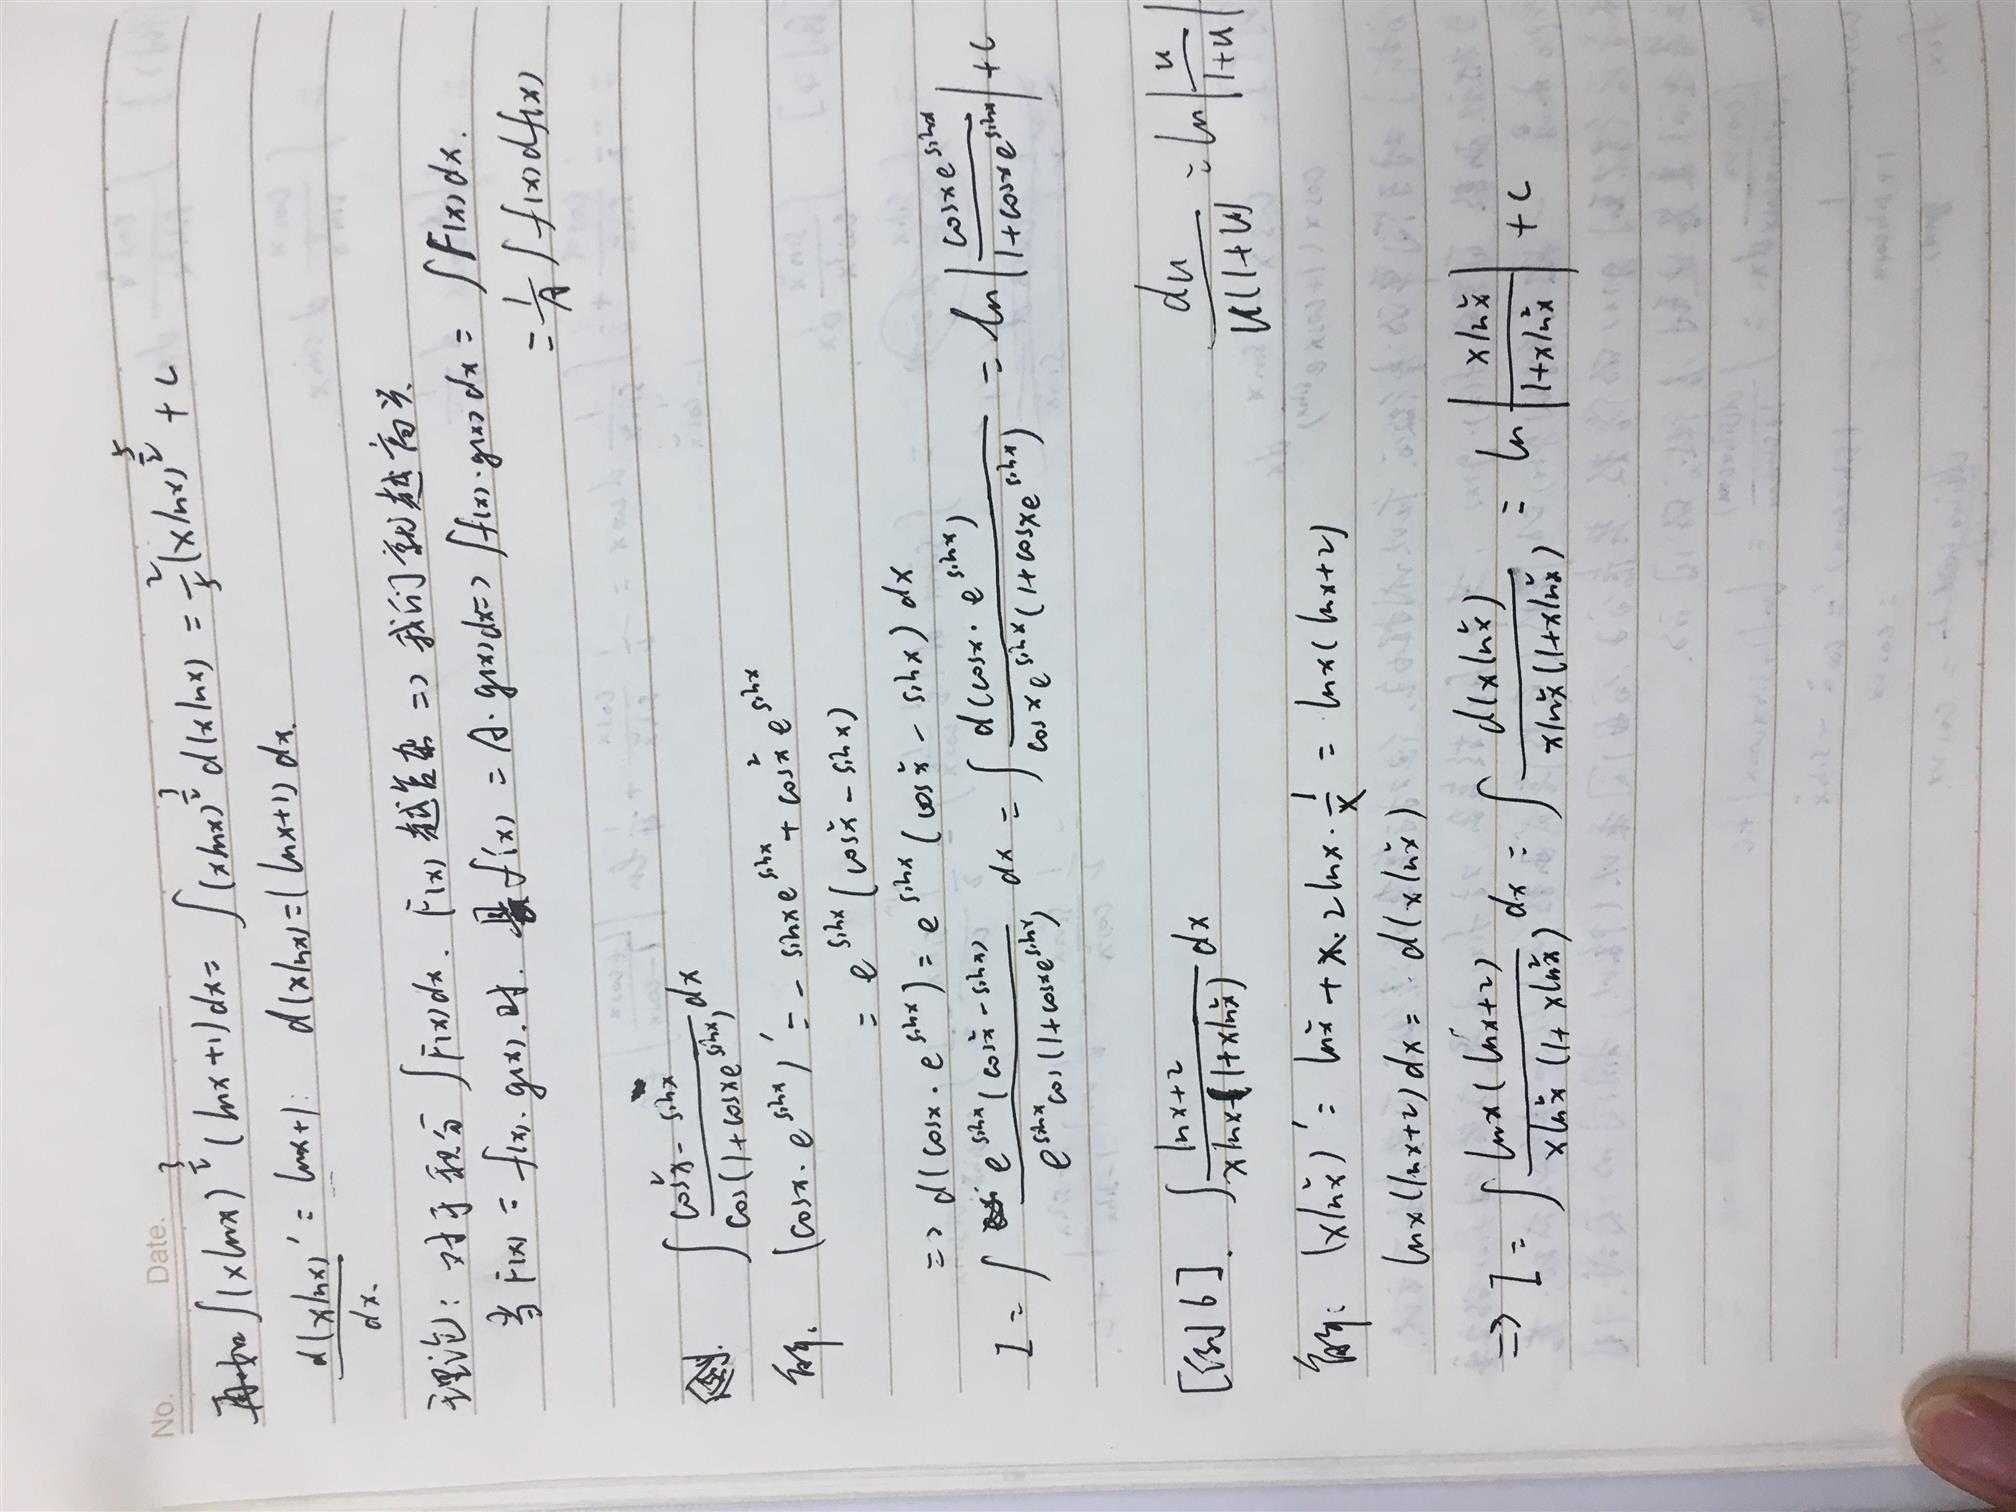 No.
Date.
再如 ∫(xlnx)^{3/2}(lnx+1)dx = ∫(xlnx)^{3/2}d(xlnx) = 2/5(xlnx)^{5/2}+C
d(xlnx)'/dx. = lnx+1. d(xlnx)=(lnx+1)dx.
理论: 对于积分 ∫F(x)dx. F(x)越复杂 => 我们就越高兴.
当 F(x) = f(x).g(x).时. f'(x) = A·g(x)dx => ∫f(x)·g(x)dx = ∫F(x)dx.
= 1/A ∫f(x)df(x)
例. ∫ (cos²x - sinx)/(cos(1+cosxe^{sinx})) dx
解. (cosx·e^{sinx})' = -sinxe^{sinx} + cos²xe^{sinx}
= e^{sinx}(cos²x - sinx)
=> d(cosx·e^{sinx}) = e^{sinx}(cos²x - sinx)dx
I = ∫ e^{sinx}(cos²x - sinx)/(e^{sinx}cos(1+cosxe^{sinx})) dx = ∫ d(cosx·e^{sinx})/(cosxe^{sinx}(1+cosxe^{sinx})) = ln|cosxe^{sinx}/(1+cosxe^{sinx})|+C
[例6]. ∫ (lnx+2)/(xlnx(1+xln²x)) dx
du/(u(1+u)) = ln|u/(1+u)|
解: (xln²x)' = ln²x + x·2lnx·1/x = lnx(lnx+2)
lnx(lnx+2)dx = d(xln²x)
=> I = ∫ lnx(lnx+2)/(xln²x(1+xln²x)) dx = ∫ d(xln²x)/(xln²x(1+xln²x)) = ln|xln²x/(1+xln²x)| + C